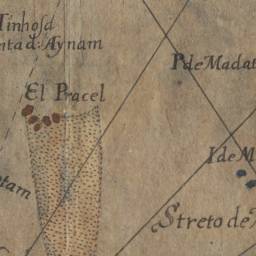 Tinhosa
ntad: Aynam
P de Madat
El Pracel
I de M
tam
Streto de